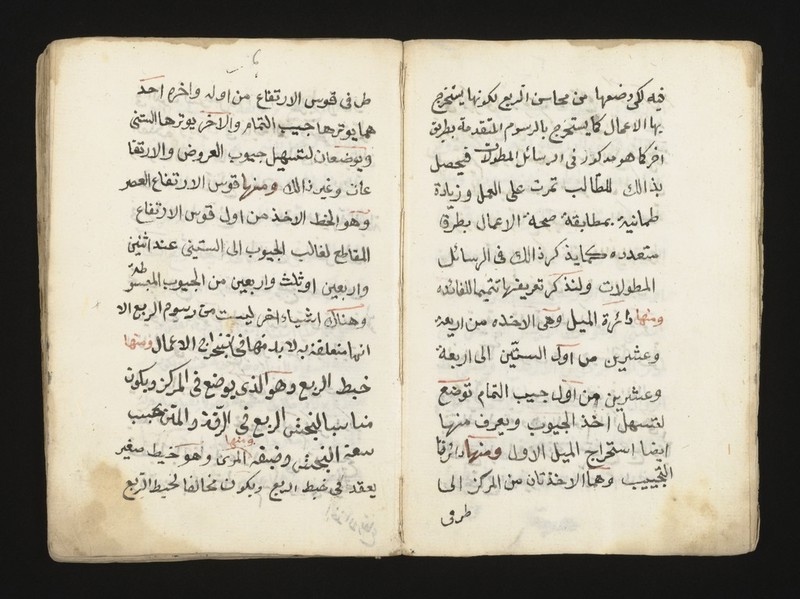 فيه لكن وضعها من محاسن الربع لكونها يستخرج
بها الاعمال كما يستخرج بالرسوم المتقدمة بطريق
اخر كما هو مذكور في الرسائل المطولات فيحصل
بذالك للطالب تمرت على العمل وزيادة
طمانية بمطابقة صحة الاعمال بطرق
متعدده كما يذكر ذالك في الرسائل
المطولات ولنذكر تعريفها تتميما للفائده
ومنها دائرة الميل وهي الاخذه من اربعة
وعشرين من اول الستين الى اربعة
وعشرين من اول جيب التمام توضع
لتسهل اخذ الجيوب ويعرف منها
ايضا استخراج الميل الاول ومنها دائرتا
التجييب وهما الاخذتان من المركز الى
طرفي
طرفي قوس الارتفاع من اوله واخره احد
هما يوترها جيب التمام والاخر يوترها الستيني
ويوضعان لتسهيل جيوب العروض والارتفا
عات وغير ذالك ومنها قوس الارتفاع العصر
وهو الخط الاخذ من اول قوس الارتفاع
المقاطع لغالب الجيوب الى الستيني عند اثنين
واربعين او ثلث واربعين من الجيوب المبسوطة
وهناك اشياء اخر ليست من رسوم الربع الا
انها متعلقة به لا بد منها في استخراج الاعمال ومنها
خيط الربع وهو الذي يوضع في المركز ويكون
مناسبا لنجش الربع في الرقة والمتن بحسب
سعة النجش وضيقه ومنها المرى وهو خيط صغير
يعقد في خيط الربع ويكون مخالفا لخيط الربع